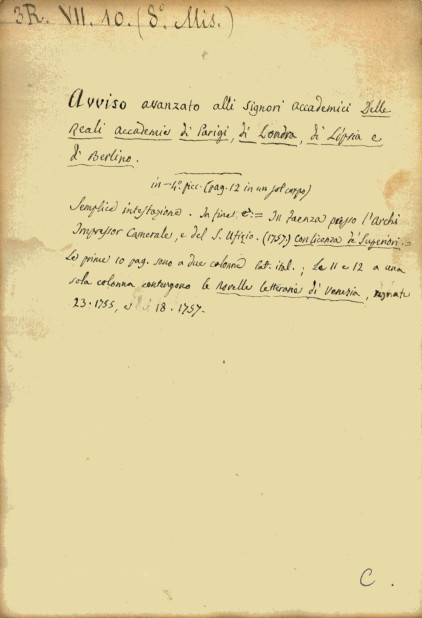 3R. VII. 10. (8.° Mis.)
Avviso avanzato alli Signori Accademici Delle
Reali Accademie di Parigi, di Londra, di Lipsia e
di Berlino.
in-4.° picc. (pag. 12 in un sol corpo)
Semplice intestazione. In fine è:= In Faenza presso l'Archi
Impressor Camerale, e del S. Ufizio. (1757) Con licenza de' Superiori.=
Le prime 10 pag. sono a due colonne lat. ital.; Le 11 e 12 a una
sola colonna contengono le Novelle letterarie di Venezia, segnate
23. 1755, e 18. 1757.
C.